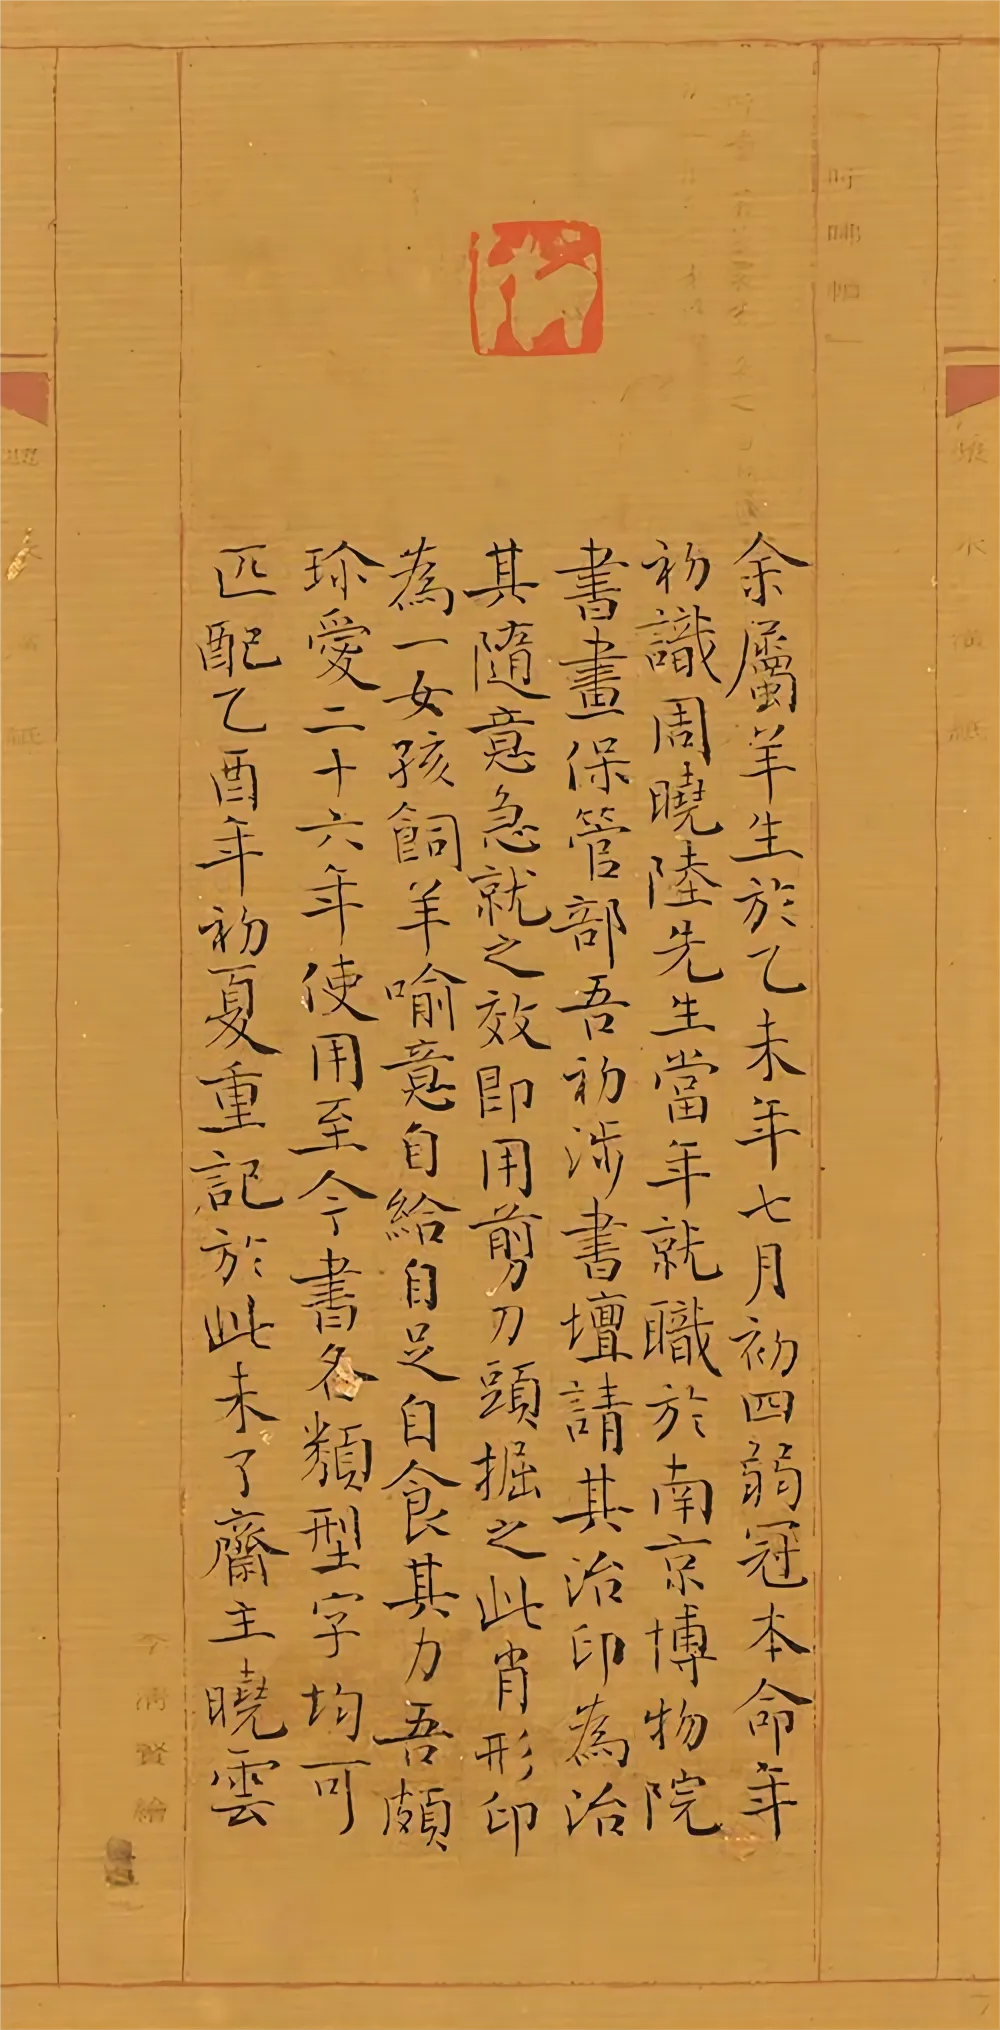 余屬羊生於乙未年七月初四弱冠本命年
初識周曉陸先生當年就職於南京博物院
書畫保管部吾初涉書壇請其治印為治
其隨意急就之效即用剪刀頭掘之此肖形印
為一女孩飼羊喻意自給自足自食其力吾頗
珎愛二十六年使用至今書各類型字均可
匹配乙酉年初夏重記於此未了齋主曉雲